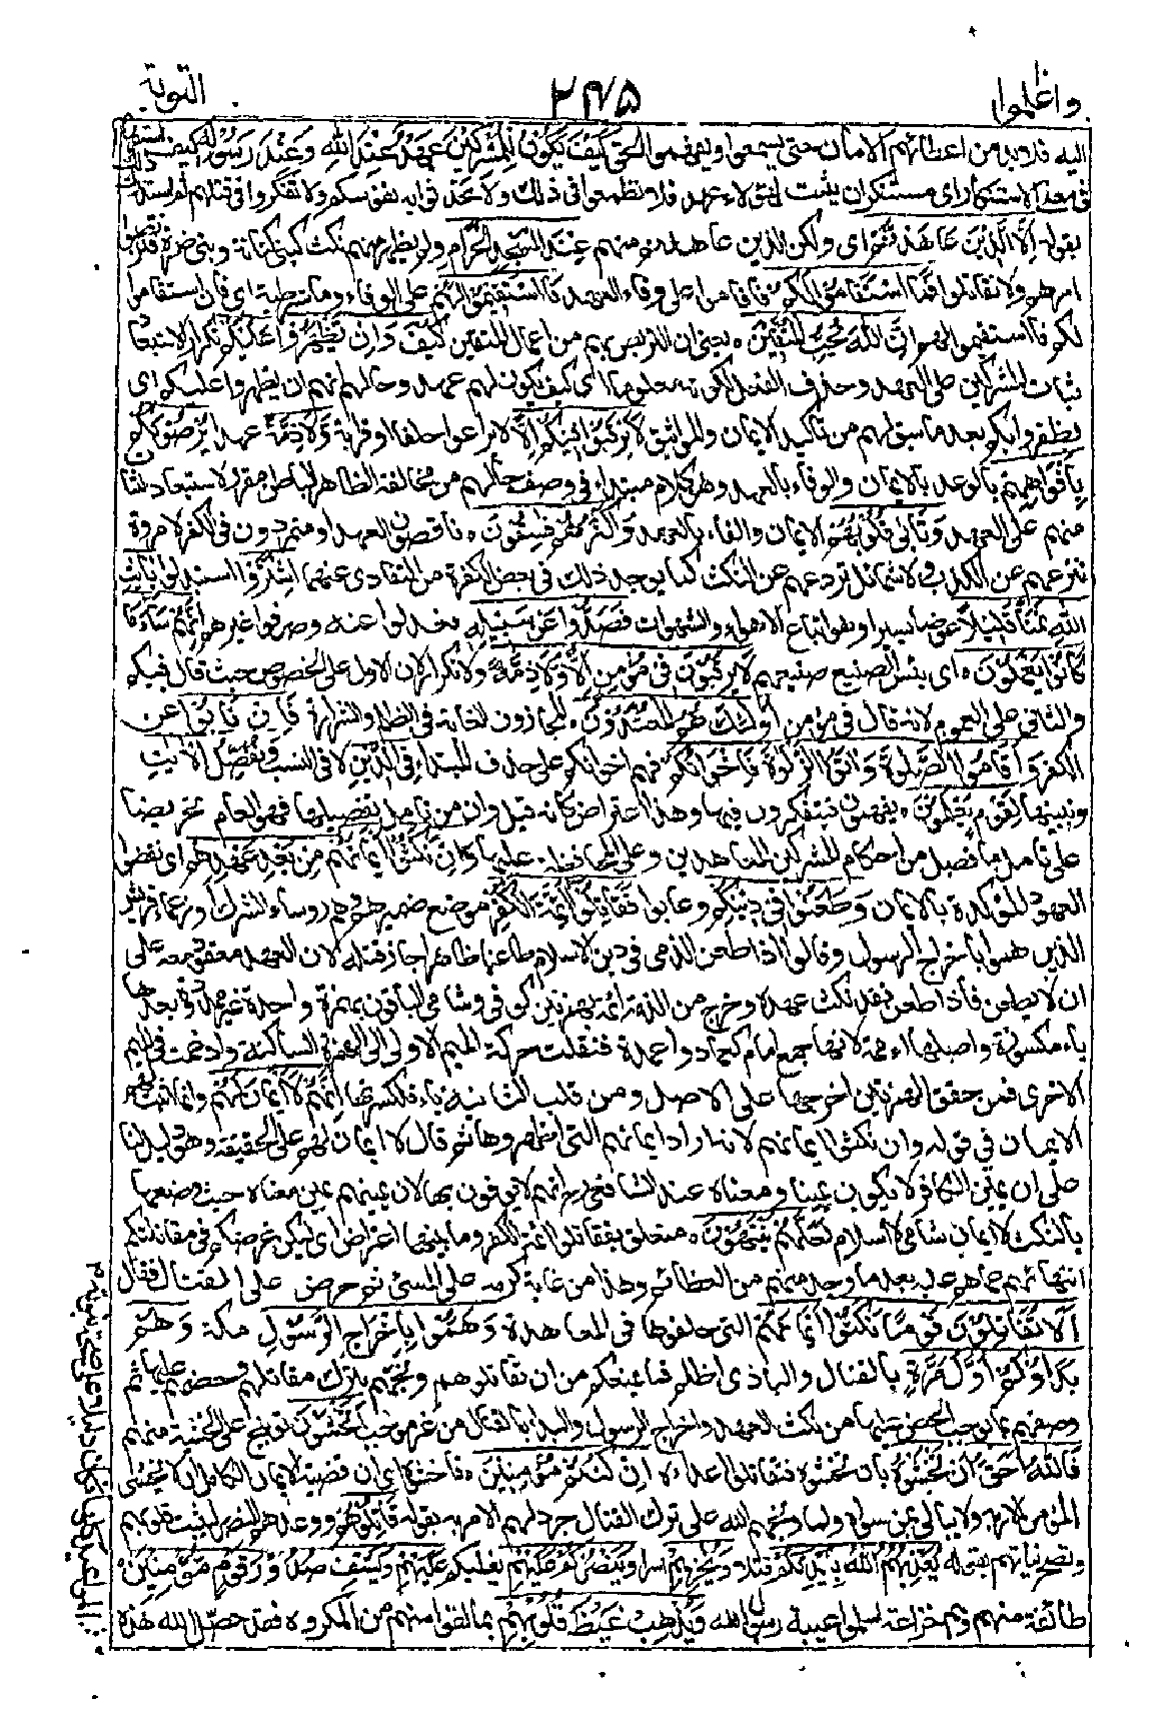 واعلموا
٢٧٥
التوبة
اليه فلا بد من اعطائهم الامان حتى يسمعوا ويفهموا الحق كَيْفَ يَكُونُ لِلْمُشْرِكِيْنَ عَهْدٌ عِنْدَ اللّٰهِ وَعِنْدَ رَسُوْلِهٖ كيف استفهام
فى معنى الاستنكار اى مستنكر ان يثبت لهؤلاء عهد فلا تطمعوا فى ذلك ولا تحدثوا به نفوسكم ولا تفكروا فى قتلهم ثم استدرك ذلك
بقوله اِلَّا الَّذِيْنَ عَاهَدْتُّمْ اى ولكن الذين عاهدتم منهم عِنْدَ الْمَسْجِدِ الْحَرَامِ ولم يظهر منهم نكث كبنى كنانة وبنى ضمرة فتربصوا
امرهم ولا تقاتلوا فَمَا اسْتَقَامُوْا لَكُمْ فما قاموا على وفاء العهد فَاسْتَقِيْمُوْا لَهُمْ على الوفاء وما شرطية اى فان استقاموا
لكم فاستقيموا لهم اِنَّ اللّٰهَ يُحِبُّ الْمُتَّقِيْنَ ه يعنى ان التربص بهم من اعمال المتقين كَيْفَ وَاِنْ يَّظْهَرُوْا عَلَيْكُمْ تكرار لاستبعاد
ثبات المشركين على العهد وحذف الفعل لكونه معلوما اى كيف يكون لهم عهد وحالهم انهم ان يظهروا عليكم اى
يظفروا بكم بعد ما سبق لهم من تاكيد الايمان والمواثيق لَا يَرْقُبُوْا فِيْكُمْ اِلًّا لا يراعوا حلفا او قرابة وَّلَا ذِمَّةً عهدا يُرْضُوْنَكُمْ
بِاَفْوَاهِهِمْ بالوعد بالايمان والوفاء بالعهد وهو كلام مبتداء فى وصف حالهم من مخالفة الظاهر الباطن مقرر لاستبعاد الثبات
منهم على العهد وَتَاْبٰى قُلُوْبُهُمْ الايمان والوفاء بالعهد وَاَكْثَرُهُمْ فٰسِقُوْنَ ه ناقصون العهد او متمردون فى الكفر لا مروة
تزعهم عن الكذب ولا شمائل تردعهم عن النكث كما يوجد ذلك فى بعض الكفرة من التفادى عنهما اِشْتَرَوْا استبدلوا بِاٰيٰتِ
اللّٰهِ ثَمَنًا قَلِيْلًا عوضا يسيرا وهو اتباع الاهواء والشهوات فَصَدُّوْا عَنْ سَبِيْلِهٖ فعدلوا عنه وصرفوا غيرهم اِنَّهُمْ سَآءَ مَا
كَانُوْا يَعْمَلُوْنَ ه اى بئس الصنيع صنيعهم لَا يَرْقُبُوْنَ فِىْ مُؤْمِنٍ اِلًّا وَّلَا ذِمَّةً ولا تكرار لان الاول على الخصوص حيث قال فيكم
والثانى على العموم لانه قال فى مؤمن اُولٰٓئِكَ هُمُ الْمُعْتَدُوْنَ ه المجاوزون الغاية فى الظلم والشرارة فَاِنْ تَابُوْا عن
الكفر وَاَقَامُوا الصَّلٰوةَ وَاٰتَوُا الزَّكٰوةَ فَاِخْوَانُكُمْ فهم اخوانكم على حذف المبتداء فِى الدِّيْنِ لا فى النسب وَنُفَصِّلُ الْاٰيٰتِ
ونبينها لِقَوْمٍ يَّعْلَمُوْنَ ه يفهمون فيتفكرون فيها وهذا اعتراض كانه قيل وان من تامل تفصيلها فهو العالم تحريضا
على تامل ما فصل من احكام المشركين المعاهدين وعلى المحافظة عليها وَاِنْ نَّكَثُوْا اَيْمَانَهُمْ مِّنْ بَعْدِ عَهْدِهِمْ اى نقضوا
العهود المؤكدة بالايمان وَطَعَنُوْا فِىْ دِيْنِكُمْ وعابوا فَقَاتِلُوْا اَئِمَّةَ الْكُفْرِ موضع ضمير هم وهم روساء الشرك وزعماء قريش
الذين هموا باخراج الرسول وقالوا اذا طعن الذمى فى دين الاسلام طاعنا ظاهرا جاز قتله لان العهد معقود معه على
ان لا يطعن فاذا طعن فقد نكث عهده وخرج من الذمة ائمة بهمزتين كوفى وشامى الباقون بهمزة واحدة غير ممدودة بعدها
ياء مكسورة واصلها ااممة لانها جمع امام كعماد واعمدة فنقلت حركة الميم الاولى الى الهمزة الساكنة وادغمت فى الميم
الاخرى فمن حقق الهمزتين اخرجها على الاصل ومن قلب الثانية ياء فلكسرتها اِنَّهُمْ لَآ اَيْمَانَ لَهُمْ وانما اثبت لهم
الايمان فى قوله وان نكثوا ايمانهم لانه اراد ايمانهم التى اظهروها ثم قال لا ايمان لهم على الحقيقة وهو دليل لنا
على ان يمين الكافر لا يكون يمينا ومعناه عند الشافعى رح انهم لا يوفون بها لان يمينهم يمين معناه حيث وصفها
بالنكث لا ايمان شامى لا اسلام لَعَلَّهُمْ يَنْتَهُوْنَ ه متعلق بفقاتلوا ائمة الكفر وما بينهما اعتراض اى ليكن غرضكم فى مقاتلتكم
انتهائهم عما هم عليه بعد ما وجد منهم من العظائم وهذا من غاية كرمه على المسئ ثم حرض على القتال فقال
اَلَا تُقَاتِلُوْنَ قَوْمًا نَّكَثُوْا اَيْمَانَهُمْ التى حلفوها فى المعاهدة وَهَمُّوْا بِاِخْرَاجِ الرَّسُوْلِ من مكة وَهُمْ
بَدَءُوْكُمْ اَوَّلَ مَرَّةٍ بالقتال والبادى اظلم فما يمنعكم من ان تقاتلوهم وبخهم بترك مقاتلتهم وحضهم عليها ثم
وصفهم بما يوجب الحض عليها من نكث العهد واخراج الرسول والبدء بالقتال من غير موجب اَتَخْشَوْنَهُمْ توبيخ على الخشية منهم
فَاللّٰهُ اَحَقُّ اَنْ تَخْشَوْهُ بان تخشوه فتقاتلوا اعداءه اِنْ كُنْتُمْ مُّؤْمِنِيْنَ ه فاخشوه اى ان قضية الايمان الكامل ان لا يخشى
المؤمن الا ربه ولا يبالى بمن سواه ولما وبخهم الله على ترك القتال جرد لهم الامر به بقوله قَاتِلُوْهُمْ ووعدهم النصر ليثبت قلوبهم
ويصحح نياتهم بقوله يُعَذِّبْهُمُ اللّٰهُ بِاَيْدِيْكُمْ قتلا وَيُخْزِهِمْ اسرا وَيَنْصُرْكُمْ عَلَيْهِمْ يغلبكم عليهم وَيَشْفِ صُدُوْرَ قَوْمٍ مُّؤْمِنِيْنَ ه
طائفة منهم وهم خزاعة اسلموا عيبة رسول الله وَيُذْهِبْ غَيْظَ قُلُوْبِهِمْ بما لقوا منهم من المكروه فقد حصل الله هذه